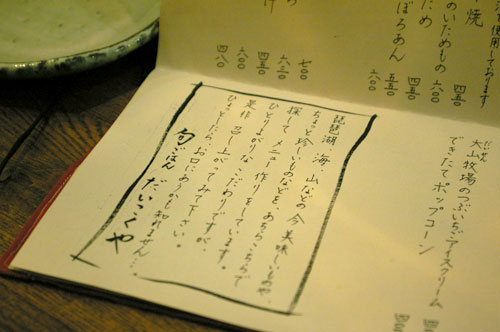 使用しております
焼
四五〇
のいためもの
四五〇
ため
五五〇
ぼろあん
六〇〇
け
七〇〇
六三〇
四五〇
四八〇
大山牧場のつぶいちごアイスクリーム
できたてポップコーン
琵琶湖、海、山などの今美味しいものや、
ちょっと珍しいものなどを、あちらこちらで
探して メニュー作りをしています。
ひとりよがりなこだわりですが、
是非 召し上がってみて下さい。
ひょっとしたら、お口にあうかも知れません…。
旬ごはん だいこくや